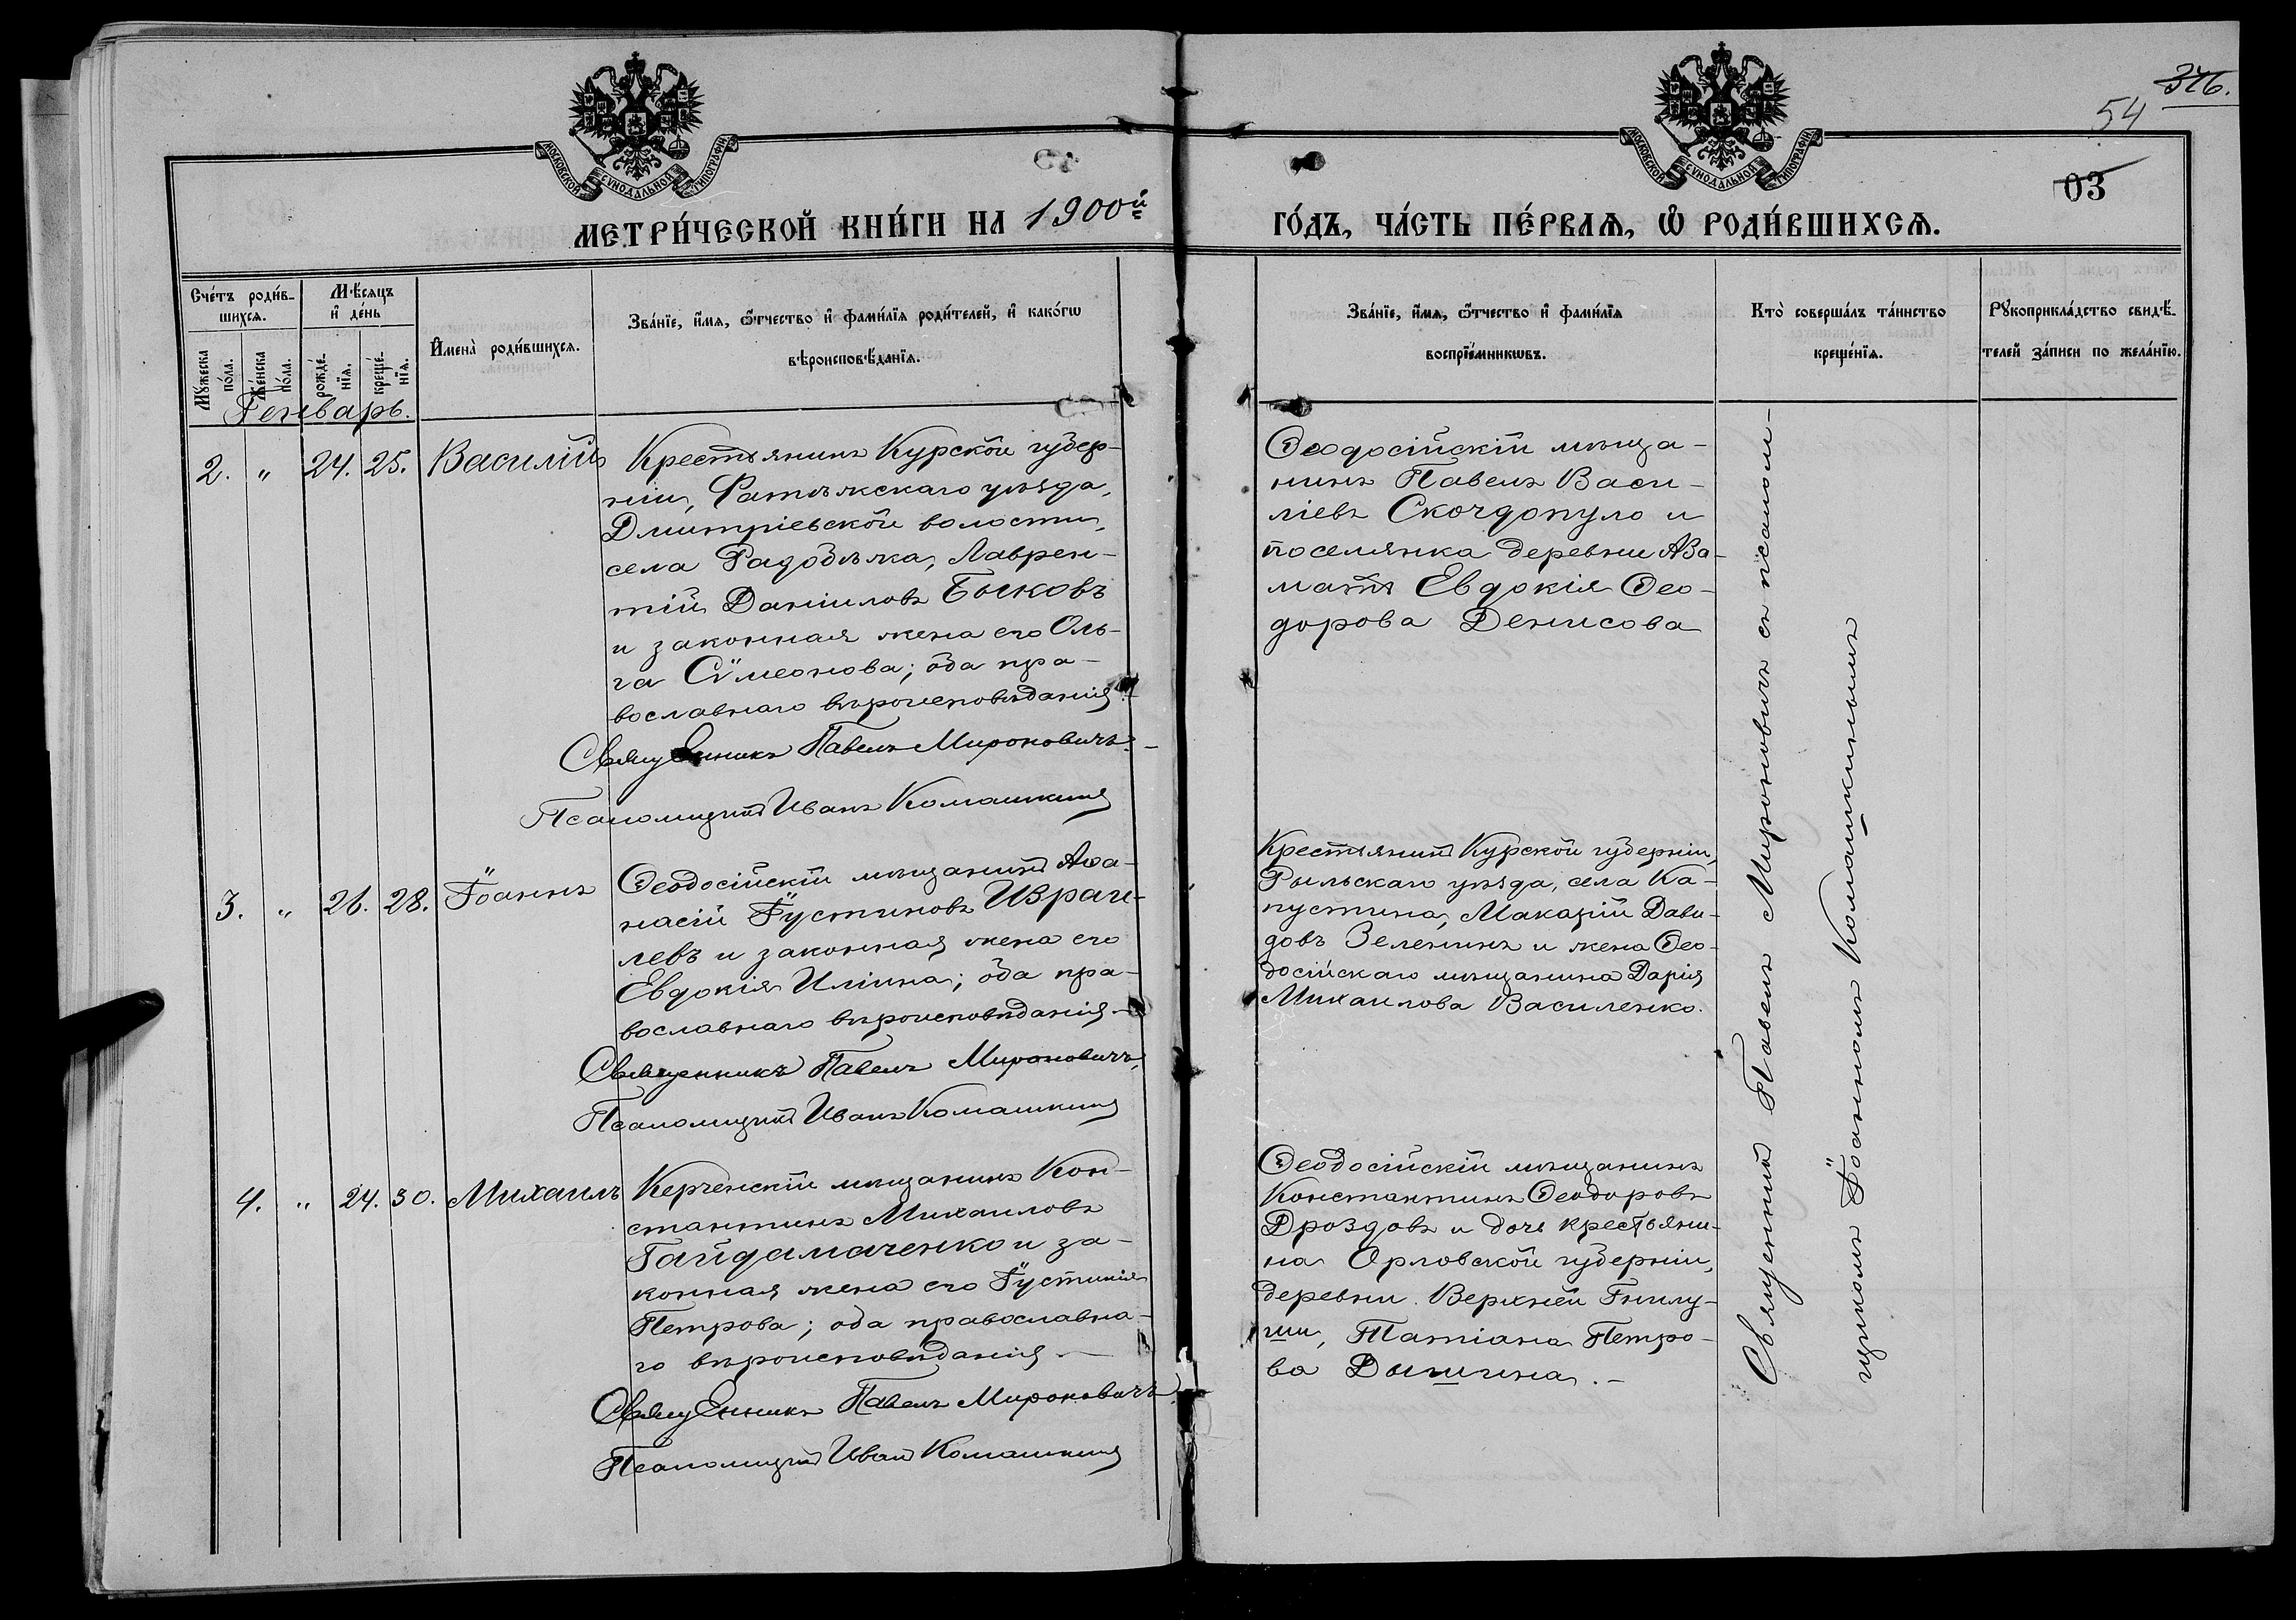 376.
54
03
МОСКОВСКОЙ СѴНОДАЛЬНОЙ ТИПОГРАФІИ
МОСКОВСКОЙ СѴНОДАЛЬНОЙ ТИПОГРАФІИ
МЕТРИ́ЧЕСКОЙ КНИ́ГИ НА 1900й ГО́ДЪ, ЧА́СТЬ ПЕ́РВАѦ, Ѡ҆ РОДИ́ВШИХСѦ.
Сче́тъ роди́в-
шихсѧ.
Мꙋ́жеска
по́ла.
Же́нска
по́ла.
Мѣ́сѧцъ
и҆ де́нь
рожде́-
нїѧ.
креще́-
нїѧ.
И҆мена̀ роди́вшихсѧ.
Зва́нїе, и҆́мѧ, ѻ҆́тчество и҆ фами́лїѧ роди́телей, и҆ како́гѡ
вѣроисповѣ́данїѧ.
Зва́нїе, и҆́мѧ, ѻ҆́тчество и҆ фами́лїѧ
воспрїе́мникѡвъ.
Кто̀ соверша́лъ та́инство
креще́нїѧ.
Рꙋкоприкла́дство свидѣ́-
телей за́писи по жела́нїю.
Генварь.
2. " 24. 25. Василій
Крестьянинъ Курской губер-
ніи, Фатѣжскаго уѣзда,
Дмитріевской волости,
села Радобѣжа, Лаврен-
тій Даніиловъ Быковъ
и законная жена его Оль-
га Сѵмеонова; оба пра-
вославнаго вѣроисповѣданія.
Священникъ Павелъ Мироновичъ.
Псаломщикъ Иванъ Комашкинъ
Ѳеодосійскій мѣща-
нинъ Павелъ Васи-
ліевъ Скордопуло и
поселянка деревни Аза-
матъ Евдокія Ѳео-
дорова Денисова
3. " 26. 28. Іоаннъ
Ѳеодосійскій мѣщанинъ Аѳа-
насій Іустиновъ Израи-
левъ и законная жена его
Евдокія Иліина; оба пра-
вославнаго вѣроисповѣданія
Священникъ Павелъ Мироновичъ,
Псаломщикъ Иванъ Комашкинъ
Крестьянинъ Курской губерніи,
Рыльскаго уѣзда, села Ка-
пустина, Макарій Дави-
довъ Зеленинъ и жена Ѳео-
досійскаго мѣщанина Дарія
Михаилова Василенко.
4. " 24. 30. Михаилъ
Керченскій мѣщанинъ Кон-
стантинъ Михаиловъ
Гайдамаченко и за-
конная жена его Іустинія
Петрова; оба православна-
го вѣроисповѣданія
Священникъ Павелъ Мироновичъ
Псаломщикъ Иванъ Комашкинъ
Ѳеодосійскій мѣщанинъ
Константинъ Ѳеодоровъ
Дроздовъ и дочь крестьяни-
на Орловской губерніи,
деревни Верхней Гнилу-
ши, Татіана Петро-
ва Дышина.
Священникъ Павелъ Мироновичъ съ псалом-
щикомъ Іоанномъ Комашкинымъ